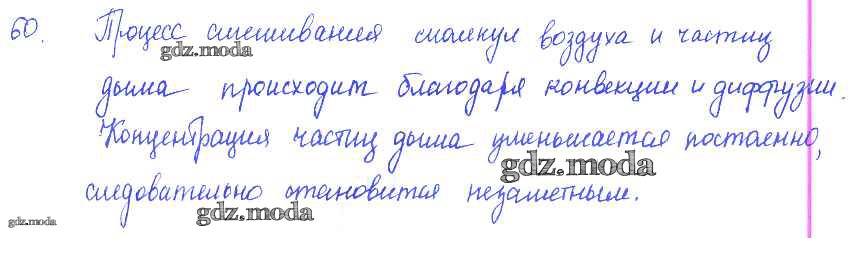 60. Процесс смешивания молекул воздуха и частиц
gdz.moda
дыма происходит благодаря конвекции и диффузии.
Концентрация частиц дыма уменьшается постоянно,
gdz.moda
следовательно становится незаметным.
gdz.moda
gdz.moda